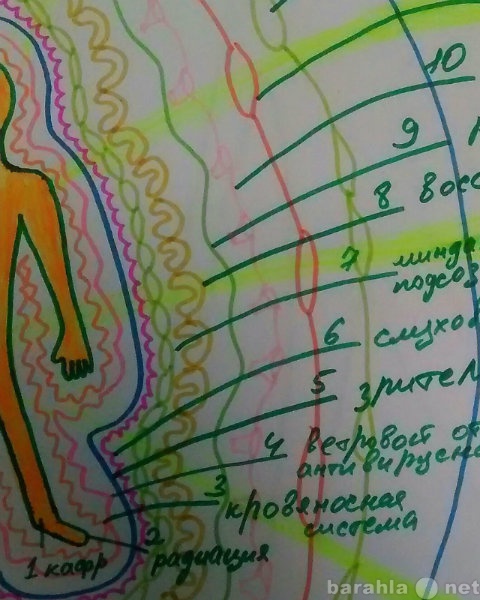 10
9
8 восс
7 минда
подсоз
6 слухов
5 зрител
4 ветровост от
антивирусн
3 кровяносная
система
2
радиация
1 кафр
barahla net